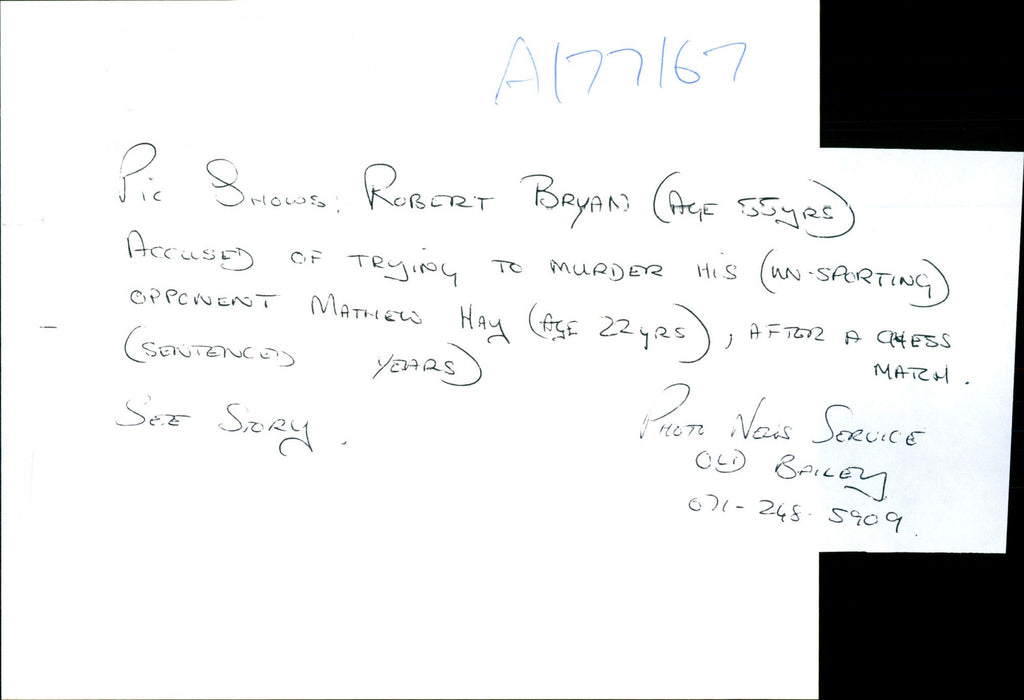 A177167
Pic Shows: Robert Bryan (Age 55yrs)
Accused of trying to murder his (un-sporting)
opponent Mathew Hay (age 22yrs), after a chess
match.
(sentenced years)
See Story.
Photo News Service
Old Bailey
071-248-5909.